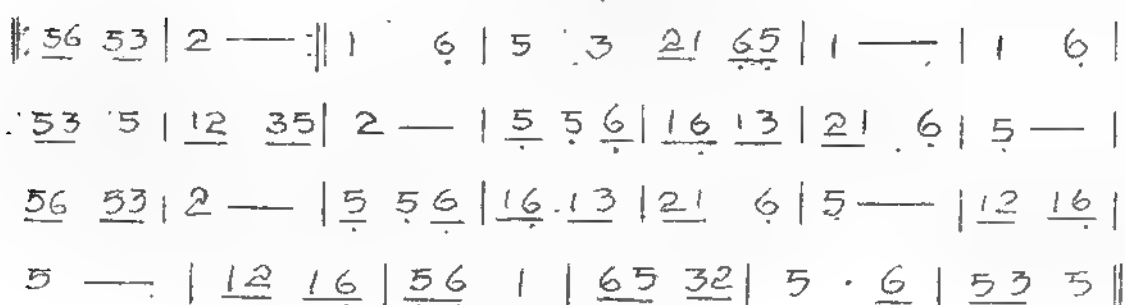 ‖: 56 53 | 2 — :‖ 1 6̣ | 5 3 21 6̣5̣ | 1 — | 1 6̣ |
53 5 | 12 35 | 2 — | 5̣ 5̣ 6̣ | 16̣ 13 | 21 6̣ | 5̣ — |
56 53 | 2 — | 5̣ 5̣ 6̣ | 16̣ 13 | 21 6̣ | 5̣ — | 12 16̣ |
5 — | 12 16̣ | 56 1 | 65 32 | 5 · 6 | 53 5 ‖